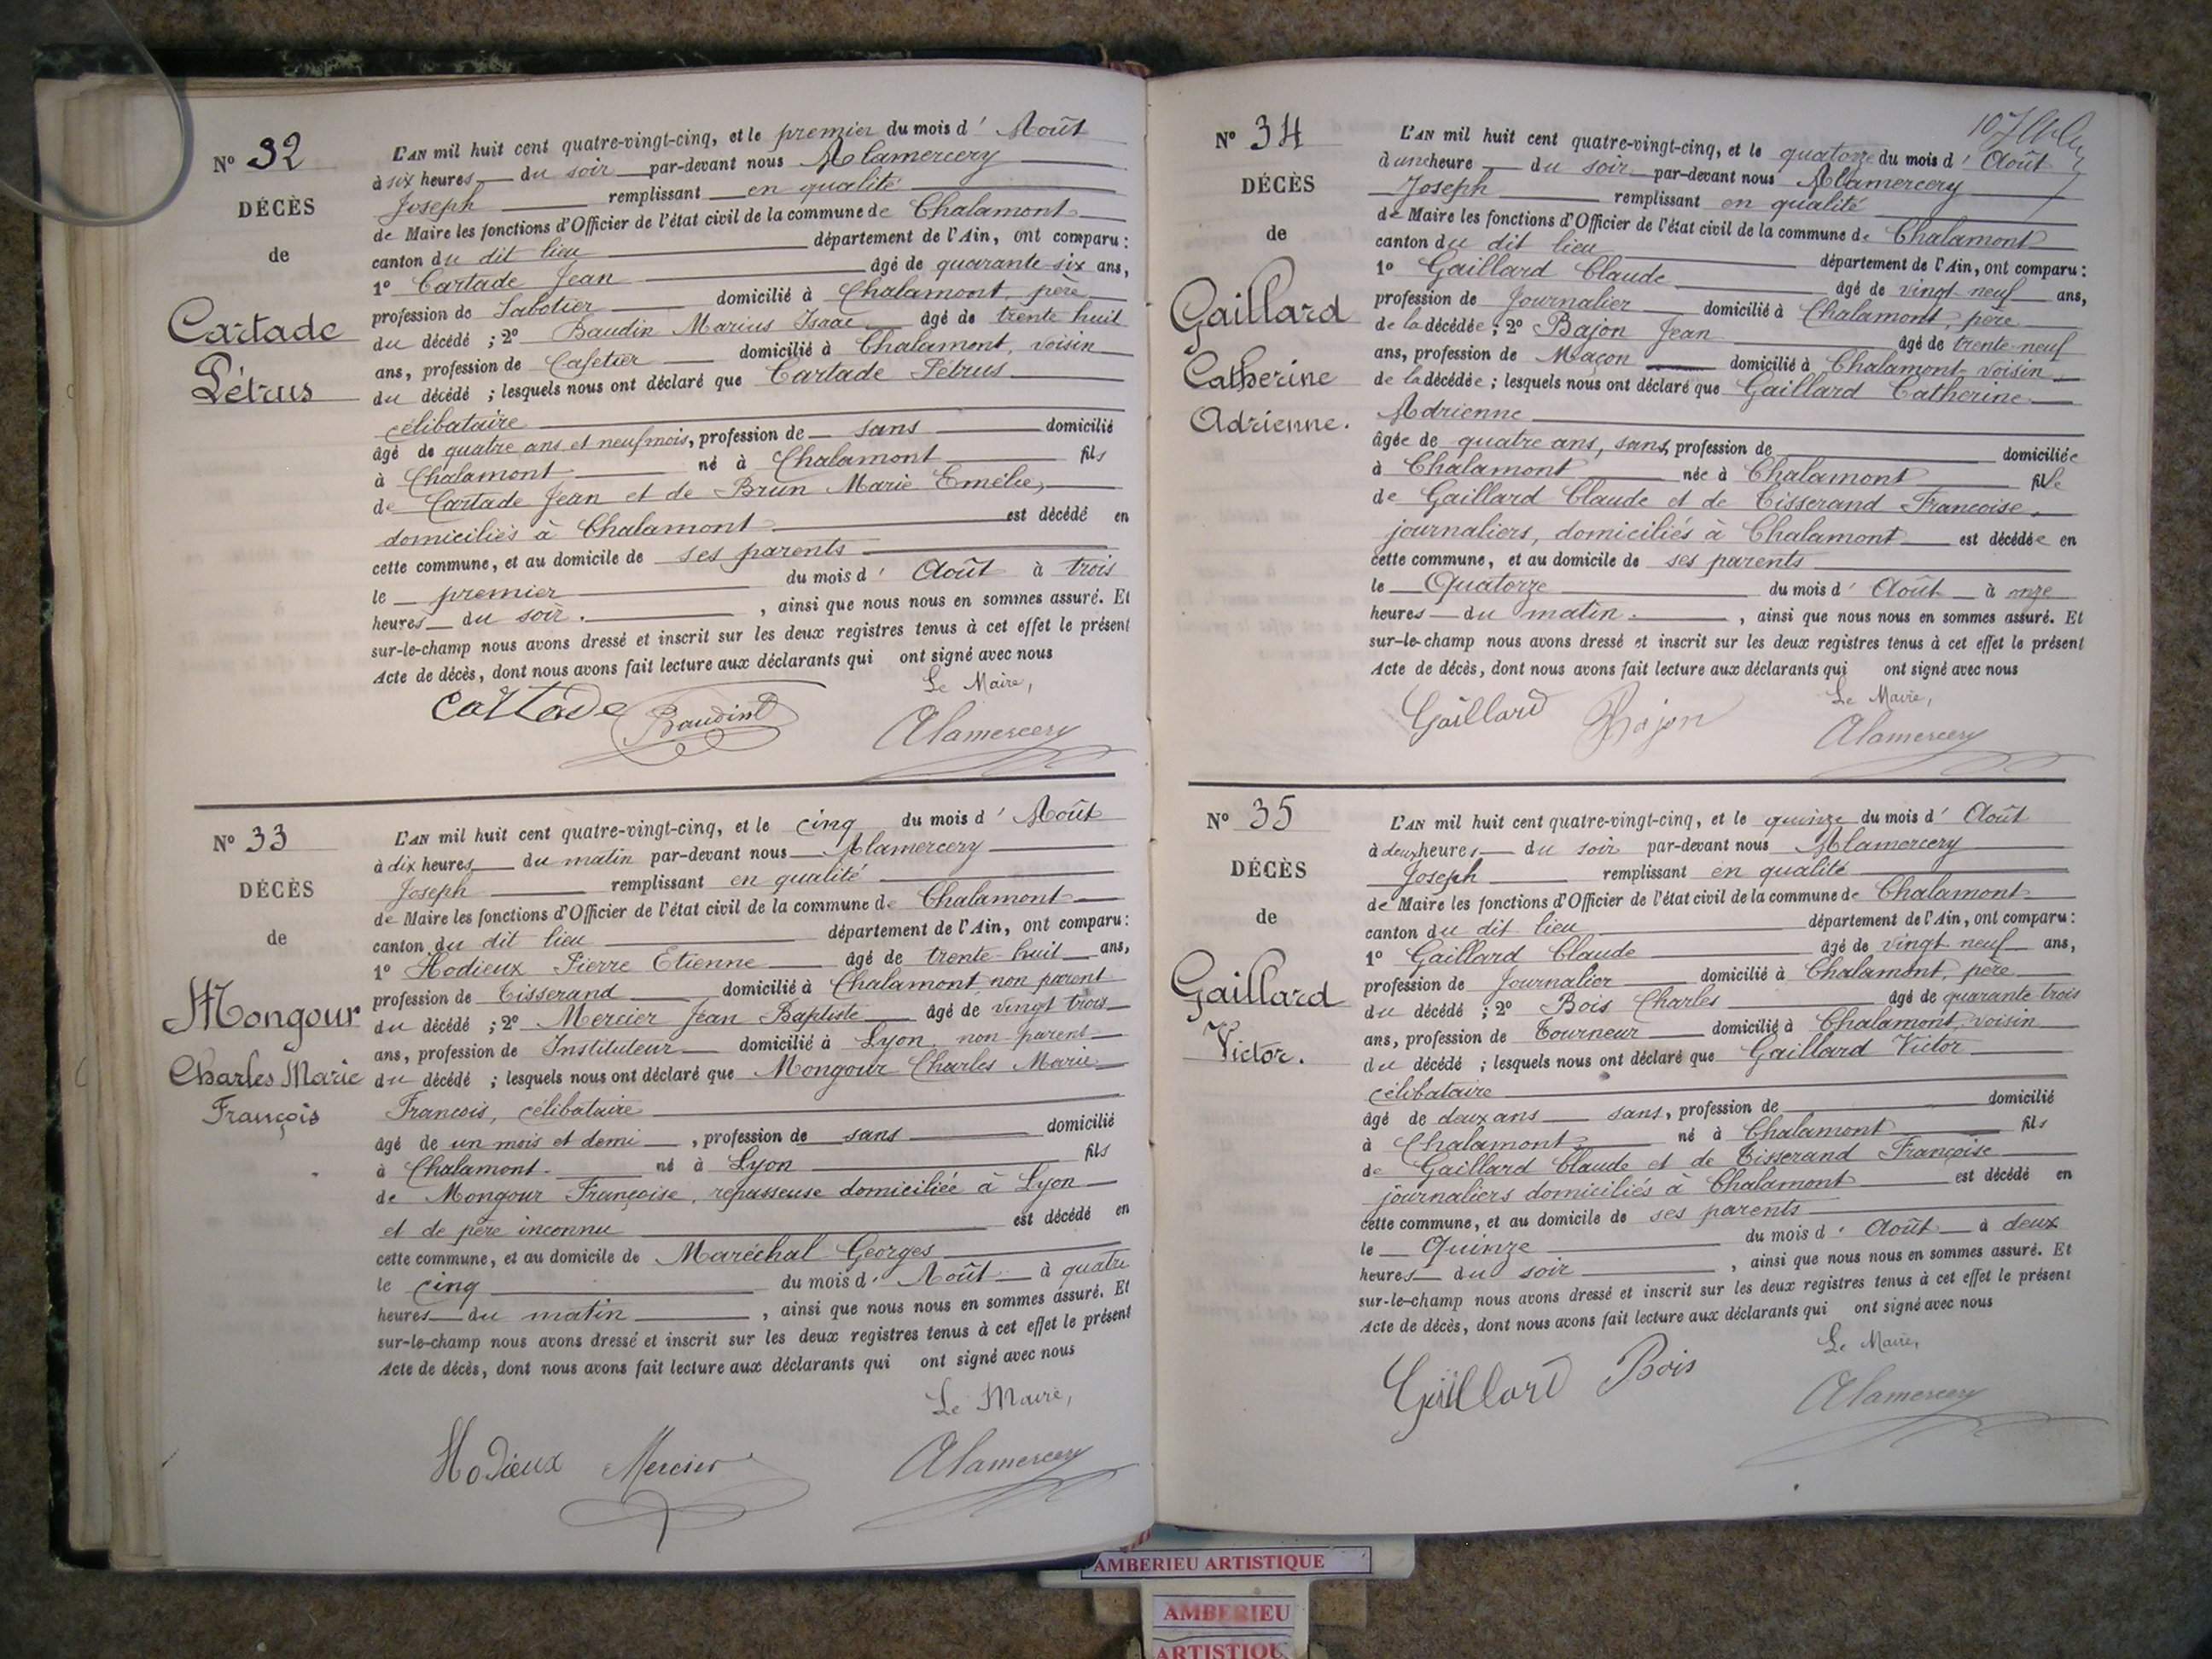 N° 32
DÉCÈS
de
Cartade
Pétrus
L'AN mil huit cent quatre-vingt-cinq, et le premier du mois d' Août
à six heures du soir par-devant nous Alamercery
Joseph remplissant en qualité
de Maire les fonctions d'Officier de l'état civil de la commune de Chalamont
canton du dit lieu département de l'Ain, ont comparu :
1° Cartade Jean âgé de quarante-six ans,
profession de Sabotier domicilié à Chalamont, père
du décédé ; 2° Baudin Marius Isaac âgé de trente huit
ans, profession de Cafetier domicilié à Chalamont, voisin
du décédé ; lesquels nous ont déclaré que Cartade Pétrus
célibataire
âgé de quatre ans et neuf mois, profession de sans domicilié
à Chalamont né à Chalamont fils
de Cartade Jean et de Brun Marie Emélie,
domiciliés à Chalamont est décédé en
cette commune, et au domicile de ses parents
le premier du mois d' Août à trois
heures du soir. , ainsi que nous nous en sommes assuré. Et
sur-le-champ nous avons dressé et inscrit sur les deux registres tenus à cet effet le présent
Acte de décès, dont nous avons fait lecture aux déclarants qui ont signé avec nous
Le Maire,
Cartade Baudin Alamercery
N° 33
DÉCÈS
de
Mongour
Charles Marie
François
L'AN mil huit cent quatre-vingt-cinq, et le cinq du mois d' Août
à dix heures du matin par-devant nous Alamercery
Joseph remplissant en qualité
de Maire les fonctions d'Officier de l'état civil de la commune de Chalamont
canton du dit lieu département de l'Ain, ont comparu :
1° Hodieux Pierre Etienne âgé de trente-huit ans,
profession de Tisserand domicilié à Chalamont, non parent
du décédé ; 2° Mercier Jean Baptiste âgé de vingt trois
ans, profession de Instituteur domicilié à Lyon, non parent
du décédé ; lesquels nous ont déclaré que Mongour Charles Marie
François, célibataire
âgé de un mois et demi , profession de sans domicilié
à Chalamont. né à Lyon fils
de Mongour Françoise, repasseuse domiciliée à Lyon
et de père inconnu est décédé en
cette commune, et au domicile de Maréchal Georges
le cinq du mois d' Août à quatre
heures du matin , ainsi que nous nous en sommes assuré. Et
sur-le-champ nous avons dressé et inscrit sur les deux registres tenus à cet effet le présent
Acte de décès, dont nous avons fait lecture aux déclarants qui ont signé avec nous
Le Maire,
Hodieux Mercier Alamercery
N° 34
DÉCÈS
de
Gaillard
Catherine
Adrienne.
L'AN mil huit cent quatre-vingt-cinq, et le quatorze du mois d' Août
à une heure du soir par-devant nous Alamercery
Joseph remplissant en qualité
de Maire les fonctions d'Officier de l'état civil de la commune de Chalamont
canton du dit lieu département de l'Ain, ont comparu :
1° Gaillard Claude âgé de vingt-neuf ans,
profession de Journalier domicilié à Chalamont, père
de la décédée ; 2° Bajon Jean âgé de trente-neuf
ans, profession de Maçon domicilié à Chalamont voisin
de la décédée ; lesquels nous ont déclaré que Gaillard Catherine
Adrienne
âgée de quatre ans, sans, profession de domiciliée
à Chalamont née à Chalamont fille
de Gaillard Claude et de Tisserand Françoise,
journaliers, domiciliés à Chalamont est décédée en
cette commune, et au domicile de ses parents
le Quatorze du mois d' Août à onze
heures du matin. , ainsi que nous nous en sommes assuré. Et
sur-le-champ nous avons dressé et inscrit sur les deux registres tenus à cet effet le présent
Acte de décès, dont nous avons fait lecture aux déclarants qui ont signé avec nous
Le Maire,
Gaillard Bajon Alamercery
N° 35
DÉCÈS
de
Gaillard
Victor.
L'AN mil huit cent quatre-vingt-cinq, et le quinze du mois d' Août
à deux heures du soir par-devant nous Alamercery
Joseph remplissant en qualité
de Maire les fonctions d'Officier de l'état civil de la commune de Chalamont
canton du dit lieu département de l'Ain, ont comparu :
1° Gaillard Claude âgé de vingt neuf ans,
profession de Journalier domicilié à Chalamont, père
du décédé ; 2° Bois Charles âgé de quarante trois
ans, profession de Tourneur domicilié à Chalamont, voisin
du décédé ; lesquels nous ont déclaré que Gaillard Victor
célibataire
âgé de deux ans sans, profession de domicilié
à Chalamont né à Chalamont fils
de Gaillard Claude et de Tisserand Françoise
journaliers domiciliés à Chalamont est décédé en
cette commune, et au domicile de ses parents
le Quinze du mois d' Août à deux
heures du soir , ainsi que nous nous en sommes assuré. Et
sur-le-champ nous avons dressé et inscrit sur les deux registres tenus à cet effet le présent
Acte de décès, dont nous avons fait lecture aux déclarants qui ont signé avec nous
Le Maire,
Gaillard Bois Alamercery
AMBERIEU ARTISTIQUE
AMBERIEU
ARTISTIQUE